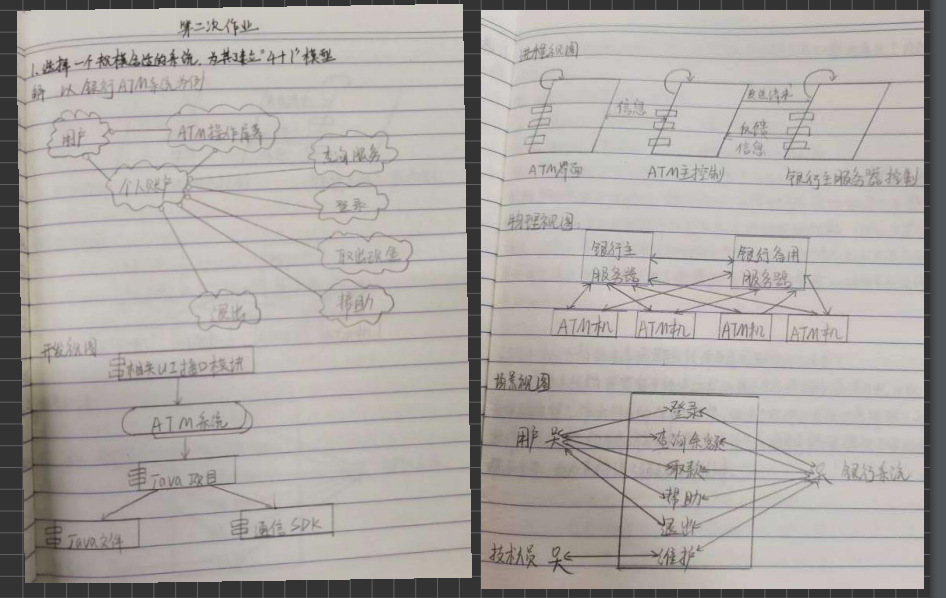 第二次作业
1.选择一个规模合适的系统,为其建立"4+1"模型
解 以银行ATM系统为例
用户
ATM操作屏幕
个人账户
查询服务
登录
取出现金
帮助
退出
开发视图
相关UI接口模块
ATM系统
Java项目
Java文件
通信SDK
进程视图
信息
发送请求
反馈
信息
ATM界面
ATM主控制
银行主服务器控制
物理视图:
银行主
服务器
银行备用
服务器
ATM机
ATM机
ATM机
ATM机
场景视图
用户
登录
查询余额
取款
帮助
退出
维护
银行系统
技术人员